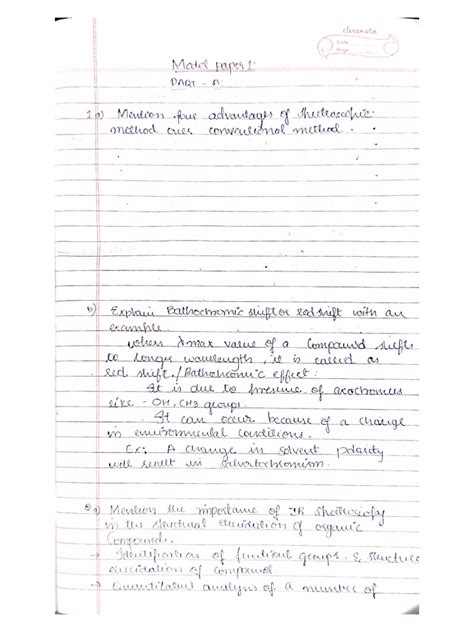 classmate
Date
Page
Model paper 1
PART - A
1 a) Mention four advantages of spectroscopic
method over conventional method.
b) Explain Bathochromic shift or red shift with an
example
when λmax value of a compound shifts
to longer wavelength, it is called as
red shift / Bathochromic effect.
It is due to presence of auxochromes
like - OH, CH3 groups.
It can occur because of a change
in environmental conditions.
Ex: A change in solvent polarity
will result in solvatochromism.
2 a) Mention the importance of IR spectroscopy
in the structural elucidation of organic
compounds.
→ Identification of functional groups & structure
elucidation of compound
→ Quantitative analysis of a number of